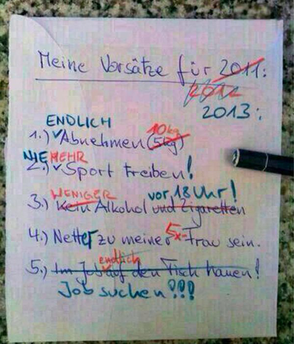 Meine Vorsätze für 2011:
2012
2013:
ENDLICH
1.) Abnehmen (5kg) 10kg
NIE MEHR
2.) Sport treiben!
WENIGER vor 18 Uhr!
3.) Kein Alkohol und Zigaretten
4.) Netter zu meiner Ex-Frau sein.
endlich
5.) Im Job auf den Tisch hauen!
Job suchen!!!